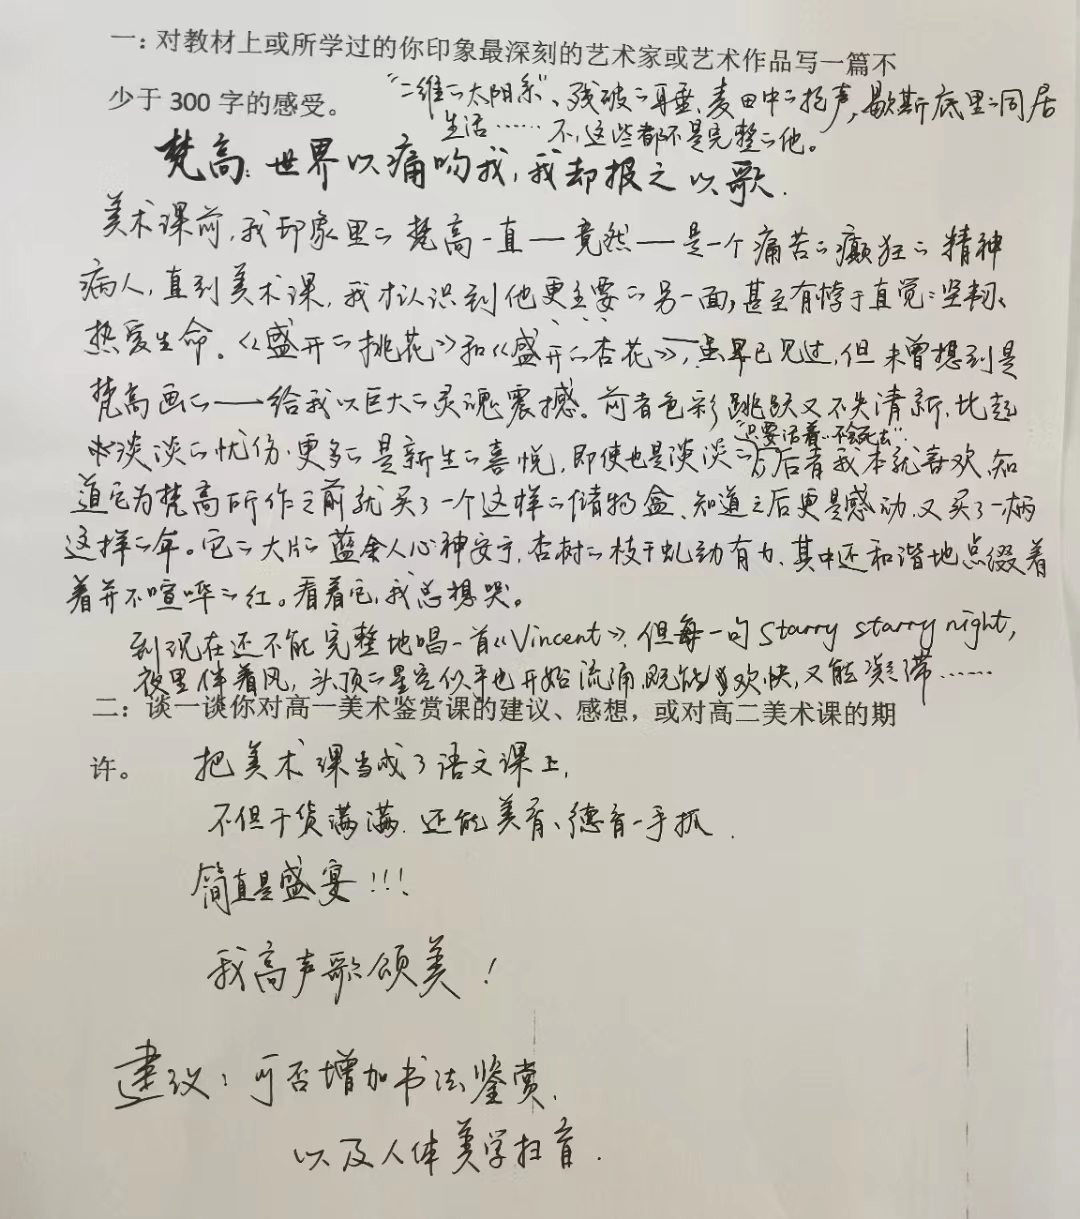 一：对教材上或所学过的你印象最深刻的艺术家或艺术作品写一篇不
少于 300 字的感受。
“二维的太阳系”、残破的耳垂、麦田中的枪声，歇斯底里的同居
生活……不，这些都不是完整的他。
梵高：世界以痛吻我，我却报之以歌.
美术课前，我印象里的梵高一直——竟然——是一个痛苦的癫狂的精神
病人，直到美术课，我才认识到他更主要的另一面，甚至有悖于直觉：坚韧、
热爱生命。《盛开的桃花》和《盛开的杏花》，虽早已见过，但未曾想到是
梵高画的——给我以巨大的灵魂震撼。前者色彩跳跃又不失清新，比起
淡淡的忧伤，更多的是新生的喜悦，即使也是淡淡的，后者我本就喜欢，知
“只要活着…不会死去”
道它为梵高所作之前就买了一个这样的储物盒、知道之后更是感动，又买了一柄
这样的伞。它的大片的蓝令人心神安宁，杏树的枝干虬劲有力、其中还和谐地点缀着
着并不喧哗的红。看着它，我总想哭。
到现在还不能完整地唱一首《Vincent》，但每一句 starry starry night，
夜里伴着风，头顶的星空似乎也开始流涌，既能欢快，又能凝滞……
二：谈一谈你对高一美术鉴赏课的建议、感想，或对高二美术课的期
许。
把美术课当成了语文课上，
不但干货满满，还能美育、德育一手抓.
简直是盛宴!!!
我高声歌颂美！
建议：可否增加书法鉴赏，
以及人体美学扫盲.